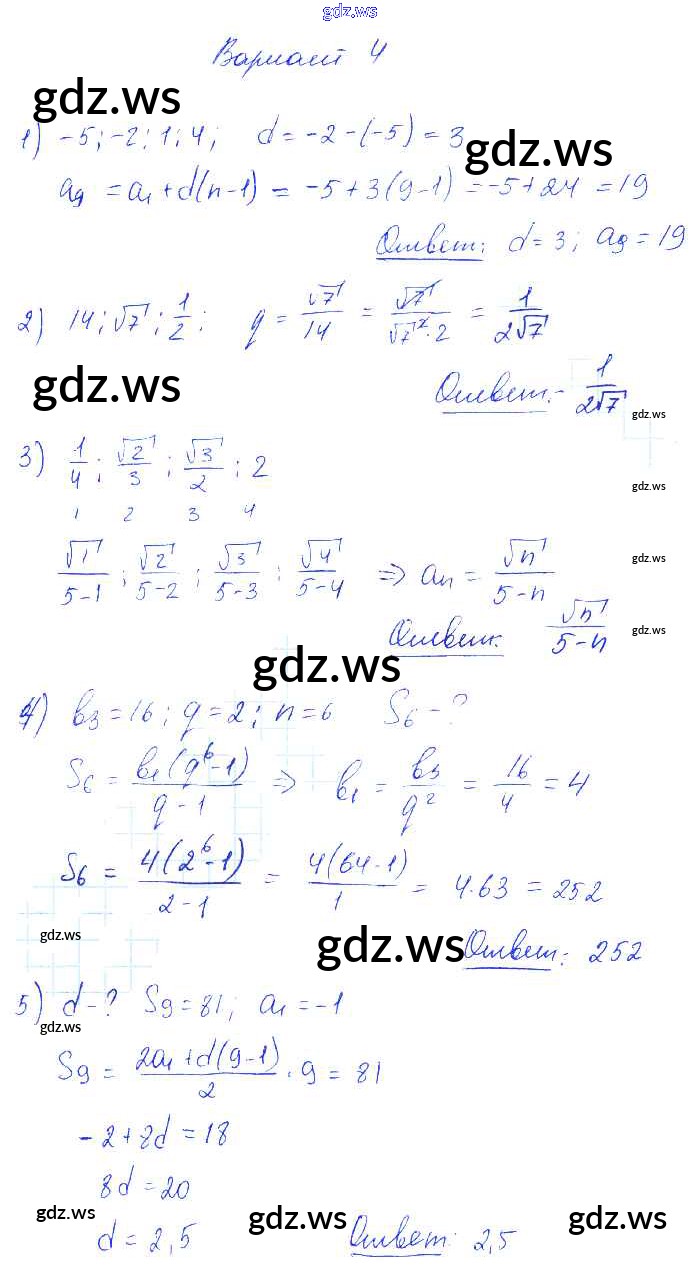 gdz.ws
Вариант 4
gdz.ws
1) -5; -2; 1; 4; d = -2 - (-5) = 3
gdz.ws
a₉ = a₁ + d(n-1) = -5 + 3(9-1) = -5 + 24 = 19
Ответ: d = 3; a₉ = 19
2) 14; √7; 1/2; q = √7/14 = √7/(√7²·2) = 1/(2√7)
gdz.ws
Ответ: 1/(2√7)
gdz.ws
3) 1/4; √2/3; √3/2; 2
gdz.ws
1 2 3 4
√1/(5-1); √2/(5-2); √3/(5-3); √4/(5-4) ⇒ aₙ = √n/(5-n)
gdz.ws
Ответ: √n/(5-n)
gdz.ws
gdz.ws
4) b₃ = 16; q = 2; n = 6 S₆ - ?
S₆ = b₁(q⁶-1)/(q-1) ⇒ b₁ = b₃/q² = 16/4 = 4
S₆ = 4(2⁶-1)/(2-1) = 4(64-1)/1 = 4·63 = 252
gdz.ws
gdz.ws
Ответ: 252
5) d - ? S₉ = 81; a₁ = -1
gdz.ws
S₉ = (2a₁ + d(9-1))/2 · 9 = 81
-2 + 8d = 18
8d = 20
gdz.ws
gdz.ws
gdz.ws
d = 2,5 Ответ: 2,5